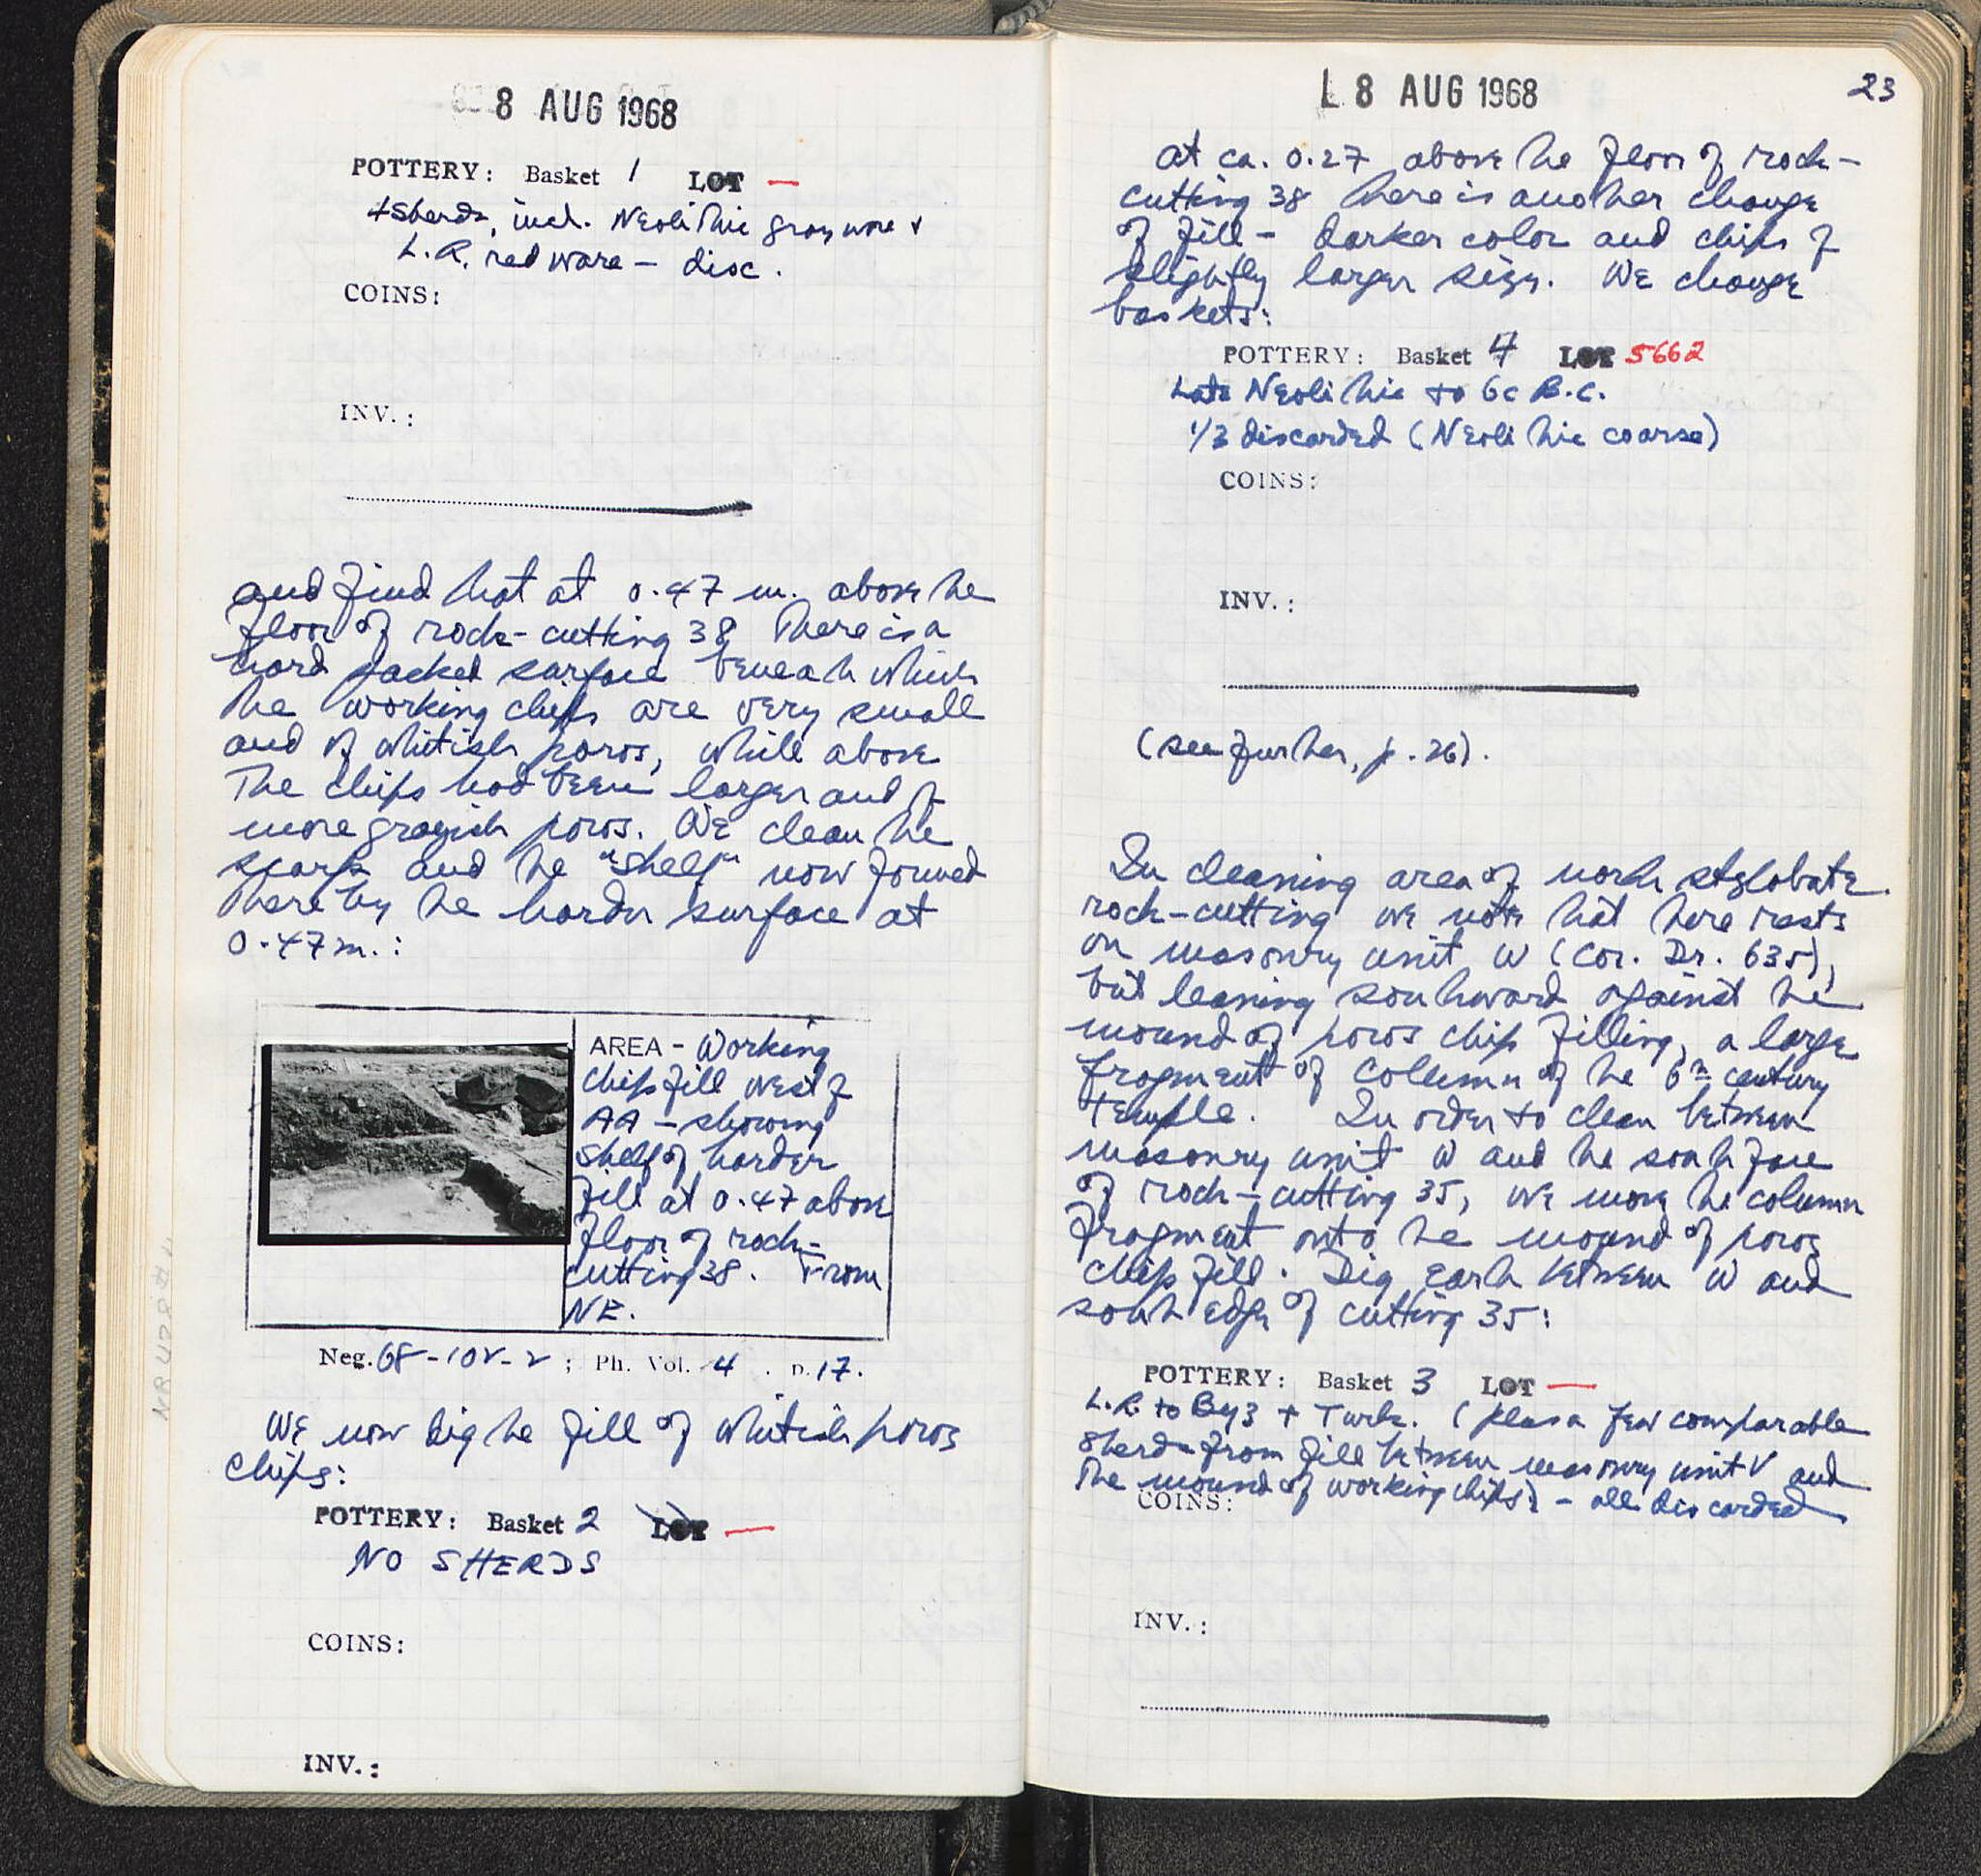 8 AUG 1968
POTTERY: Basket 1 LOT —
4 sherds, incl. Neolithic gray ware &
L.R. red ware – disc.
COINS:
INV.:
and find that at 0.47 m. above the
floor of rock-cutting 38 there is a
hard packed surface beneath which
the working chips are very small
and of whitish poros, while above
the chips had been larger and of
more grayish poros. We clean the
scarp and the "shelf" now formed
there by the harder surface at
0.47 m.:
AREA – Working
chip fill west of
AA – showing
shelf of harder
fill at 0.47 above
floor of rock-
cutting 38. From
NE.
Neg. 68-102-2 ; Ph. Vol. 4 . p. 17.
We now dig the fill of whitish poros
chips:
POTTERY: Basket 2 LOT —
NO SHERDS
COINS:
INV.:
NB 428 #4
L 8 AUG 1968
23
at ca. 0.27 above the floor of rock-
cutting 38 there is another change
of fill – darker color and chips of
slightly larger size. We change
baskets:
POTTERY: Basket 4 LOT 5662
Late Neolithic to 6c B.C.
1/3 discarded (Neolithic coarse)
COINS:
INV.:
(see further, p. 26).
In cleaning area of north stylobate
rock-cutting we note that there rests
on masonry unit W (Cor. Dr. 635),
but leaning southward against the
mound of poros chip filling, a large
fragment of column of the 6th century
temple. In order to clean between
masonry unit W and the south face
of rock-cutting 35, we move the column
fragment onto the mound of poros
chip fill. Dig earth between W and
south edge of cutting 35:
POTTERY: Basket 3 LOT —
L.R. to Byz + Turk. (plus a few comparable
sherds from fill between masonry unit V and
the mound of working chips) – all discarded
COINS:
INV.: